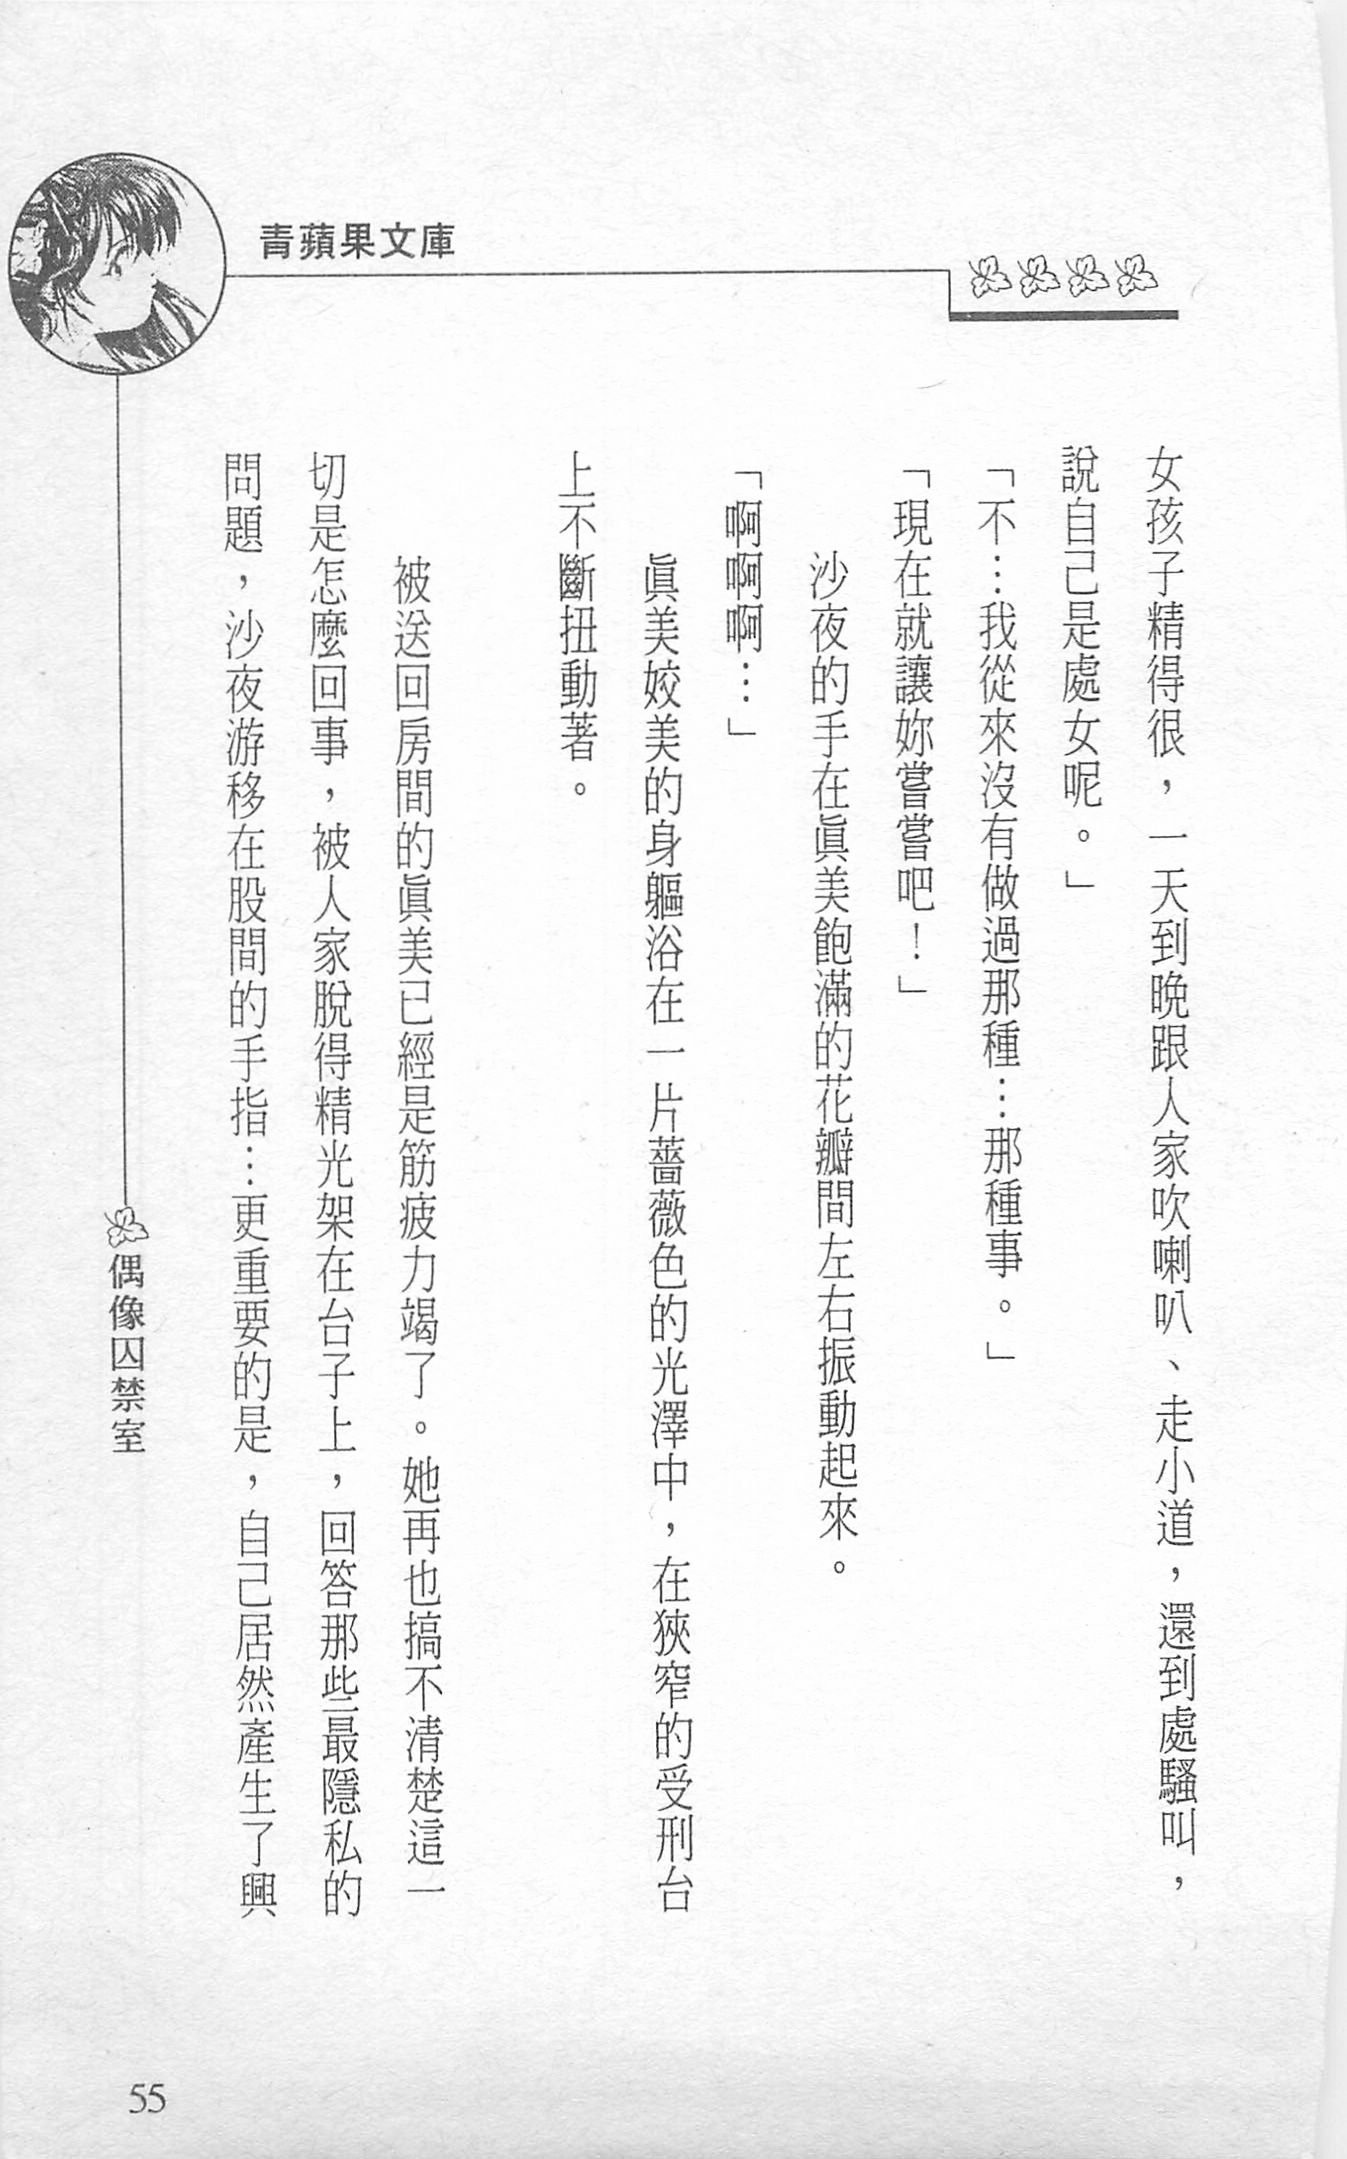 青蘋果文庫
女孩子精得很，一天到晚跟人家吹喇叭、走小道，還到處騷叫，
說自己是處女呢。」
「不…我從來沒有做過那種…那種事。」
「現在就讓妳嘗嘗吧！」
沙夜的手在眞美飽滿的花瓣間左右振動起來。
「啊啊啊…」
眞美姣美的身軀浴在一片薔薇色的光澤中，在狹窄的受刑台
上不斷扭動著。
被送回房間的眞美已經是筋疲力竭了。她再也搞不清楚這一
切是怎麼回事，被人家脫得精光架在台子上，回答那些最隱私的
問題，沙夜游移在股間的手指…更重要的是，自己居然產生了興
偶像囚禁室
55